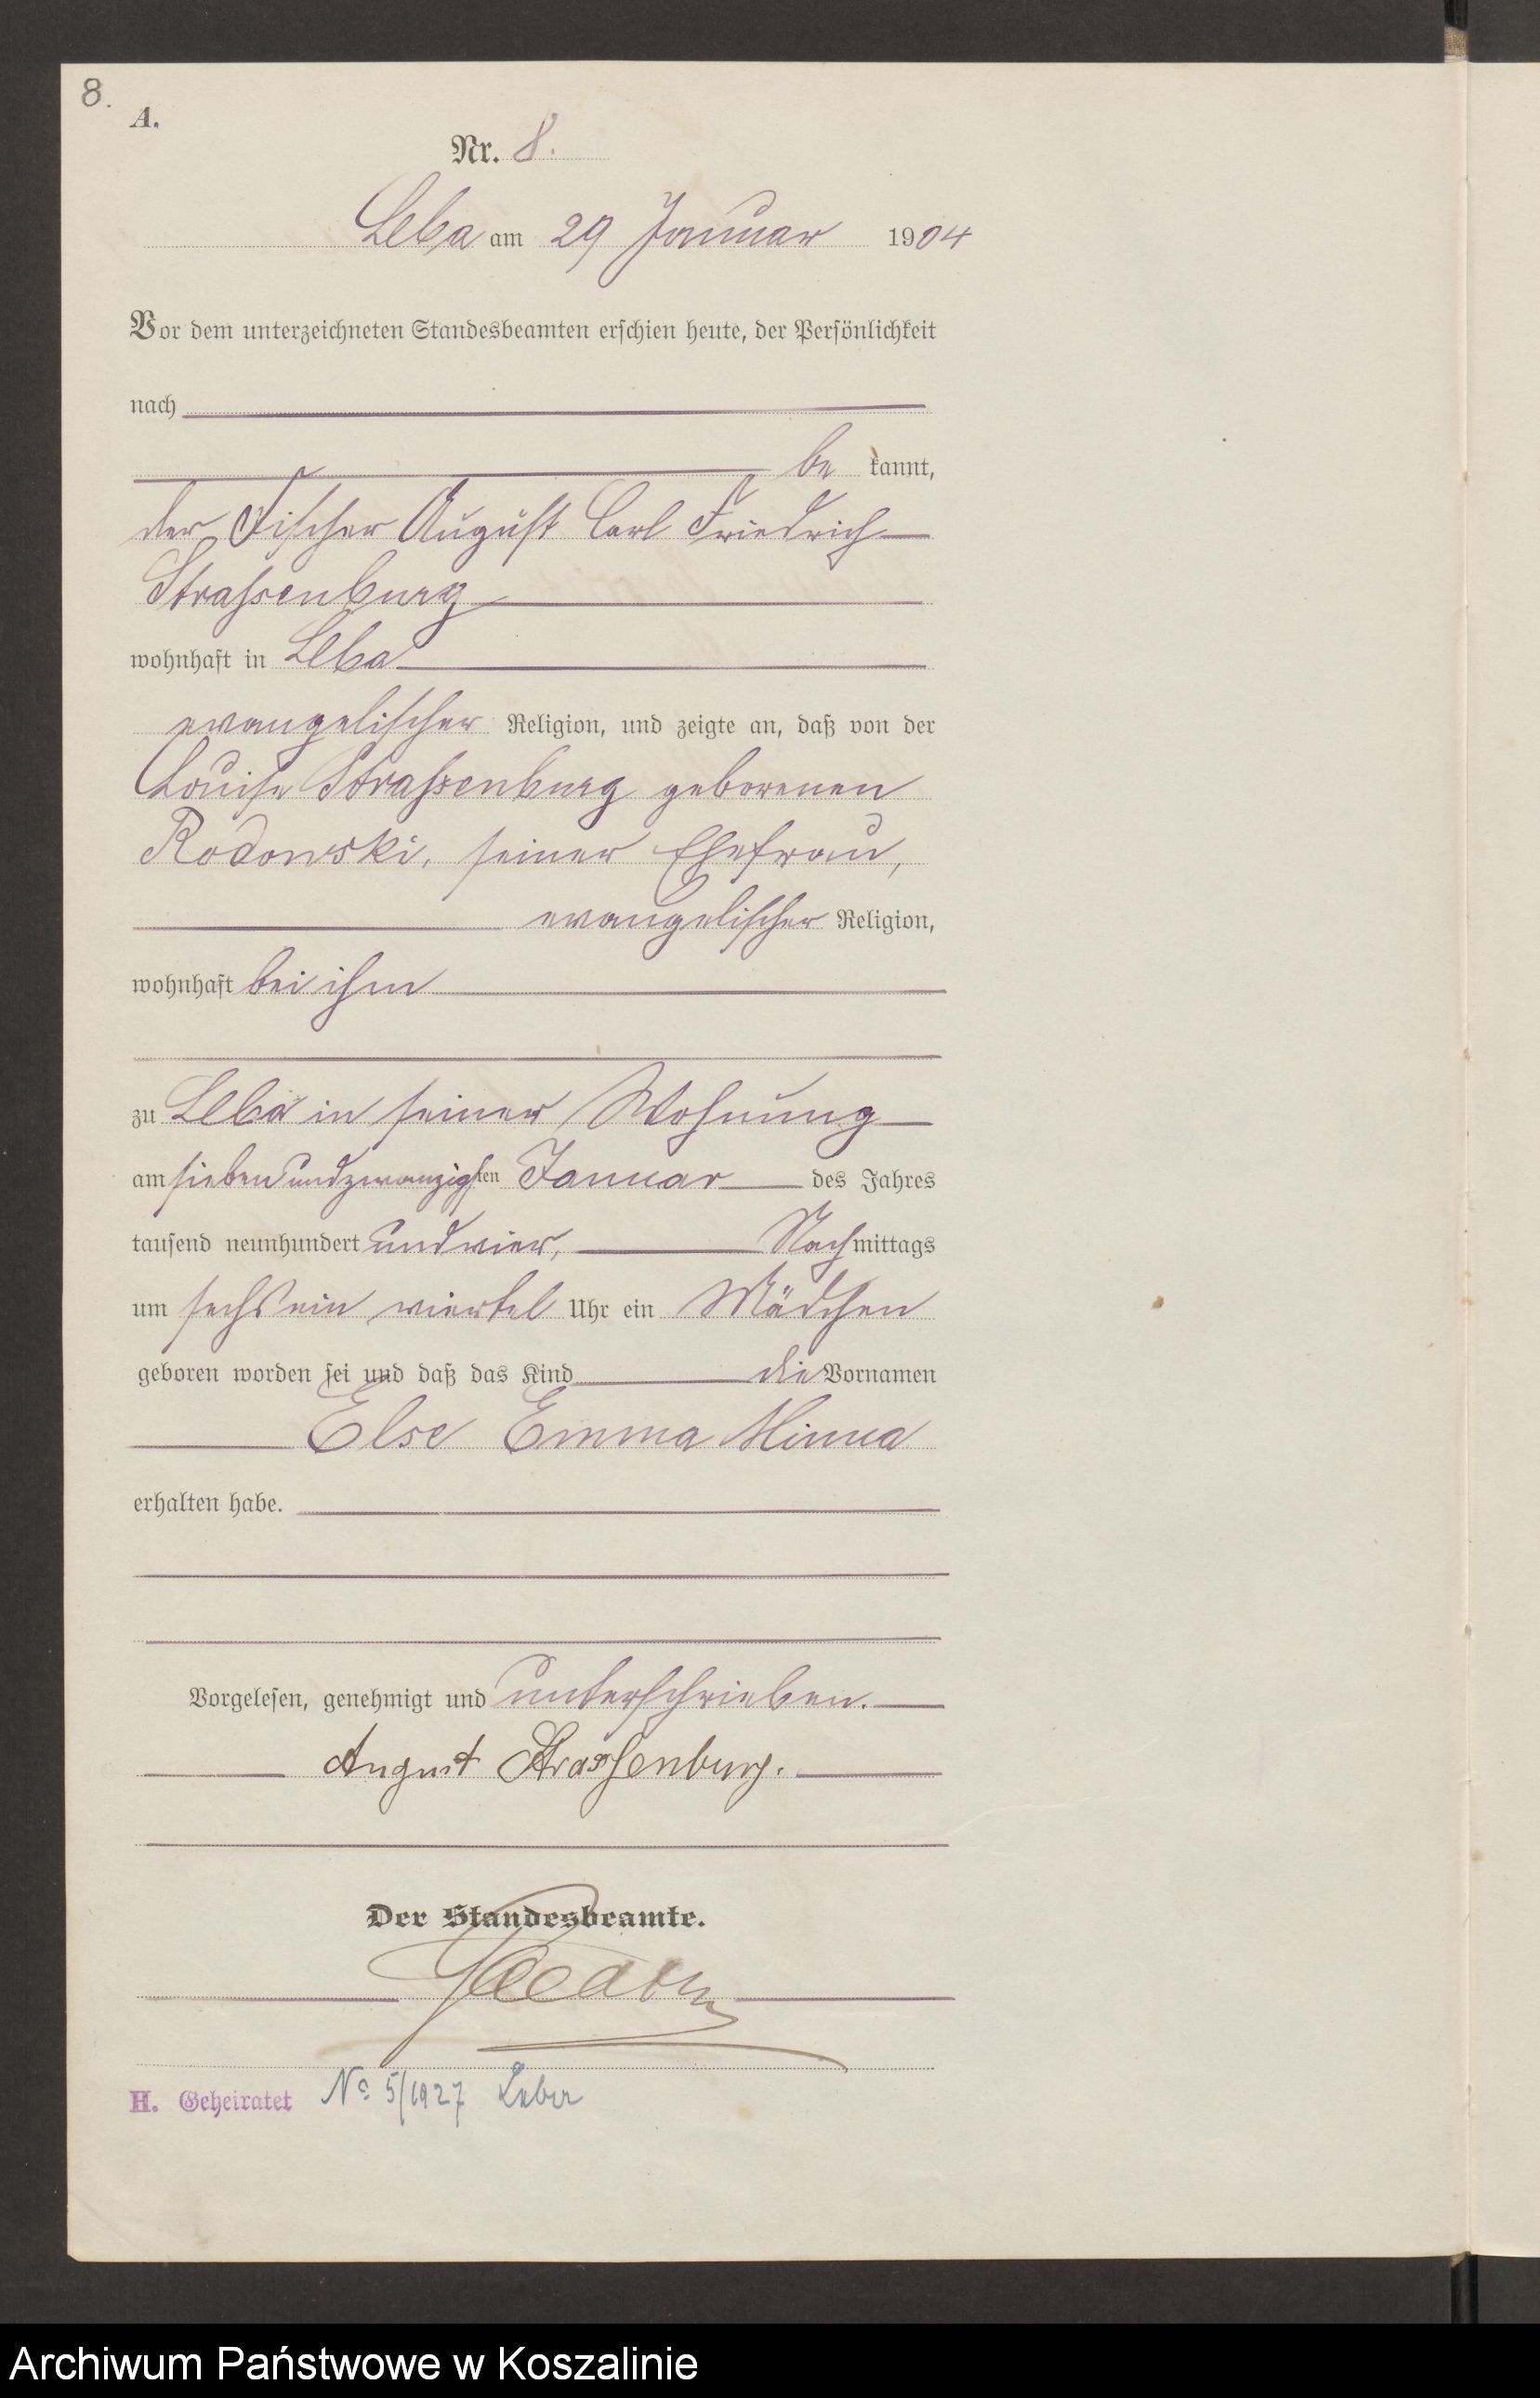 8.
A.
Nr. 8.
Leba am 29 Januar 1904
Vor dem unterzeichneten Standesbeamten erschien heute, der Persönlichkeit
nach
be kannt,
der Fischer August Carl Friedrich
Strassenburg
wohnhaft in Leba
evangelischer Religion, und zeigte an, daß von der
Louise Strassenburg geborenen
Rodowski, seiner Ehefrau,
evangelischer Religion,
wohnhaft bei ihm
zu Leba in seiner Wohnung
am siebenundzwanzigsten Januar des Jahres
tausend neunhundert und vier, Nachmittags
um sechs ein viertel Uhr ein Mädchen
geboren worden sei und daß das Kind die Vornamen
Else Emma Minna
erhalten habe.
Vorgelesen, genehmigt und unterschrieben.
August Strassenburg.
Der Standesbeamte.
H. Geheiratet No 5/1927 Leba
Archiwum Państwowe w Koszalinie